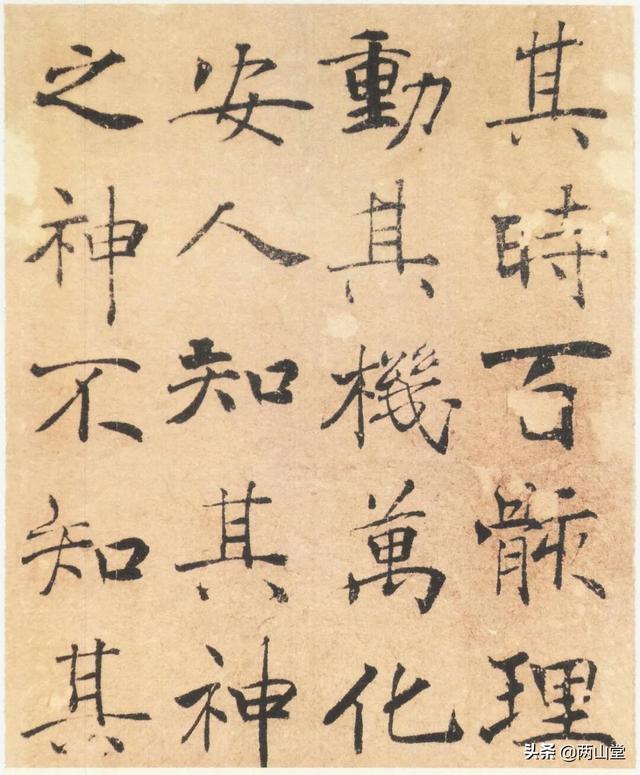 其時百骸理
動其機萬化
安人知其神
之神不知其
头条 @两山堂